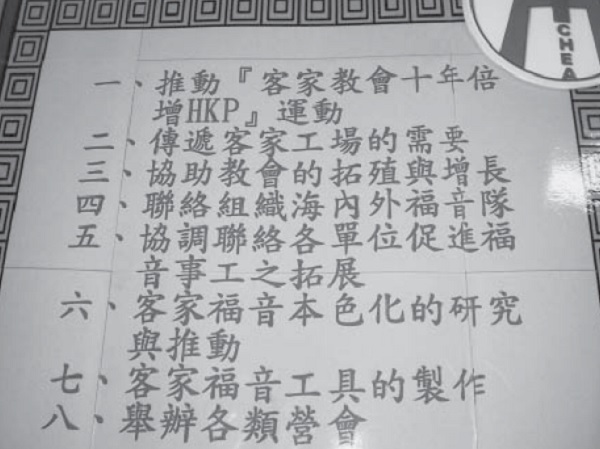 CHEA
一、推動『客家教會十年倍
增HKP』運動
二、傳遞客家工場的需要
三、協助教會的拓殖與增長
四、聯絡組織海內外福音隊
五、協調聯絡各單位促進福
音事工之拓展
六、客家福音本色化的研究
與推動
七、客家福音工具的製作
八、舉辦各類營會